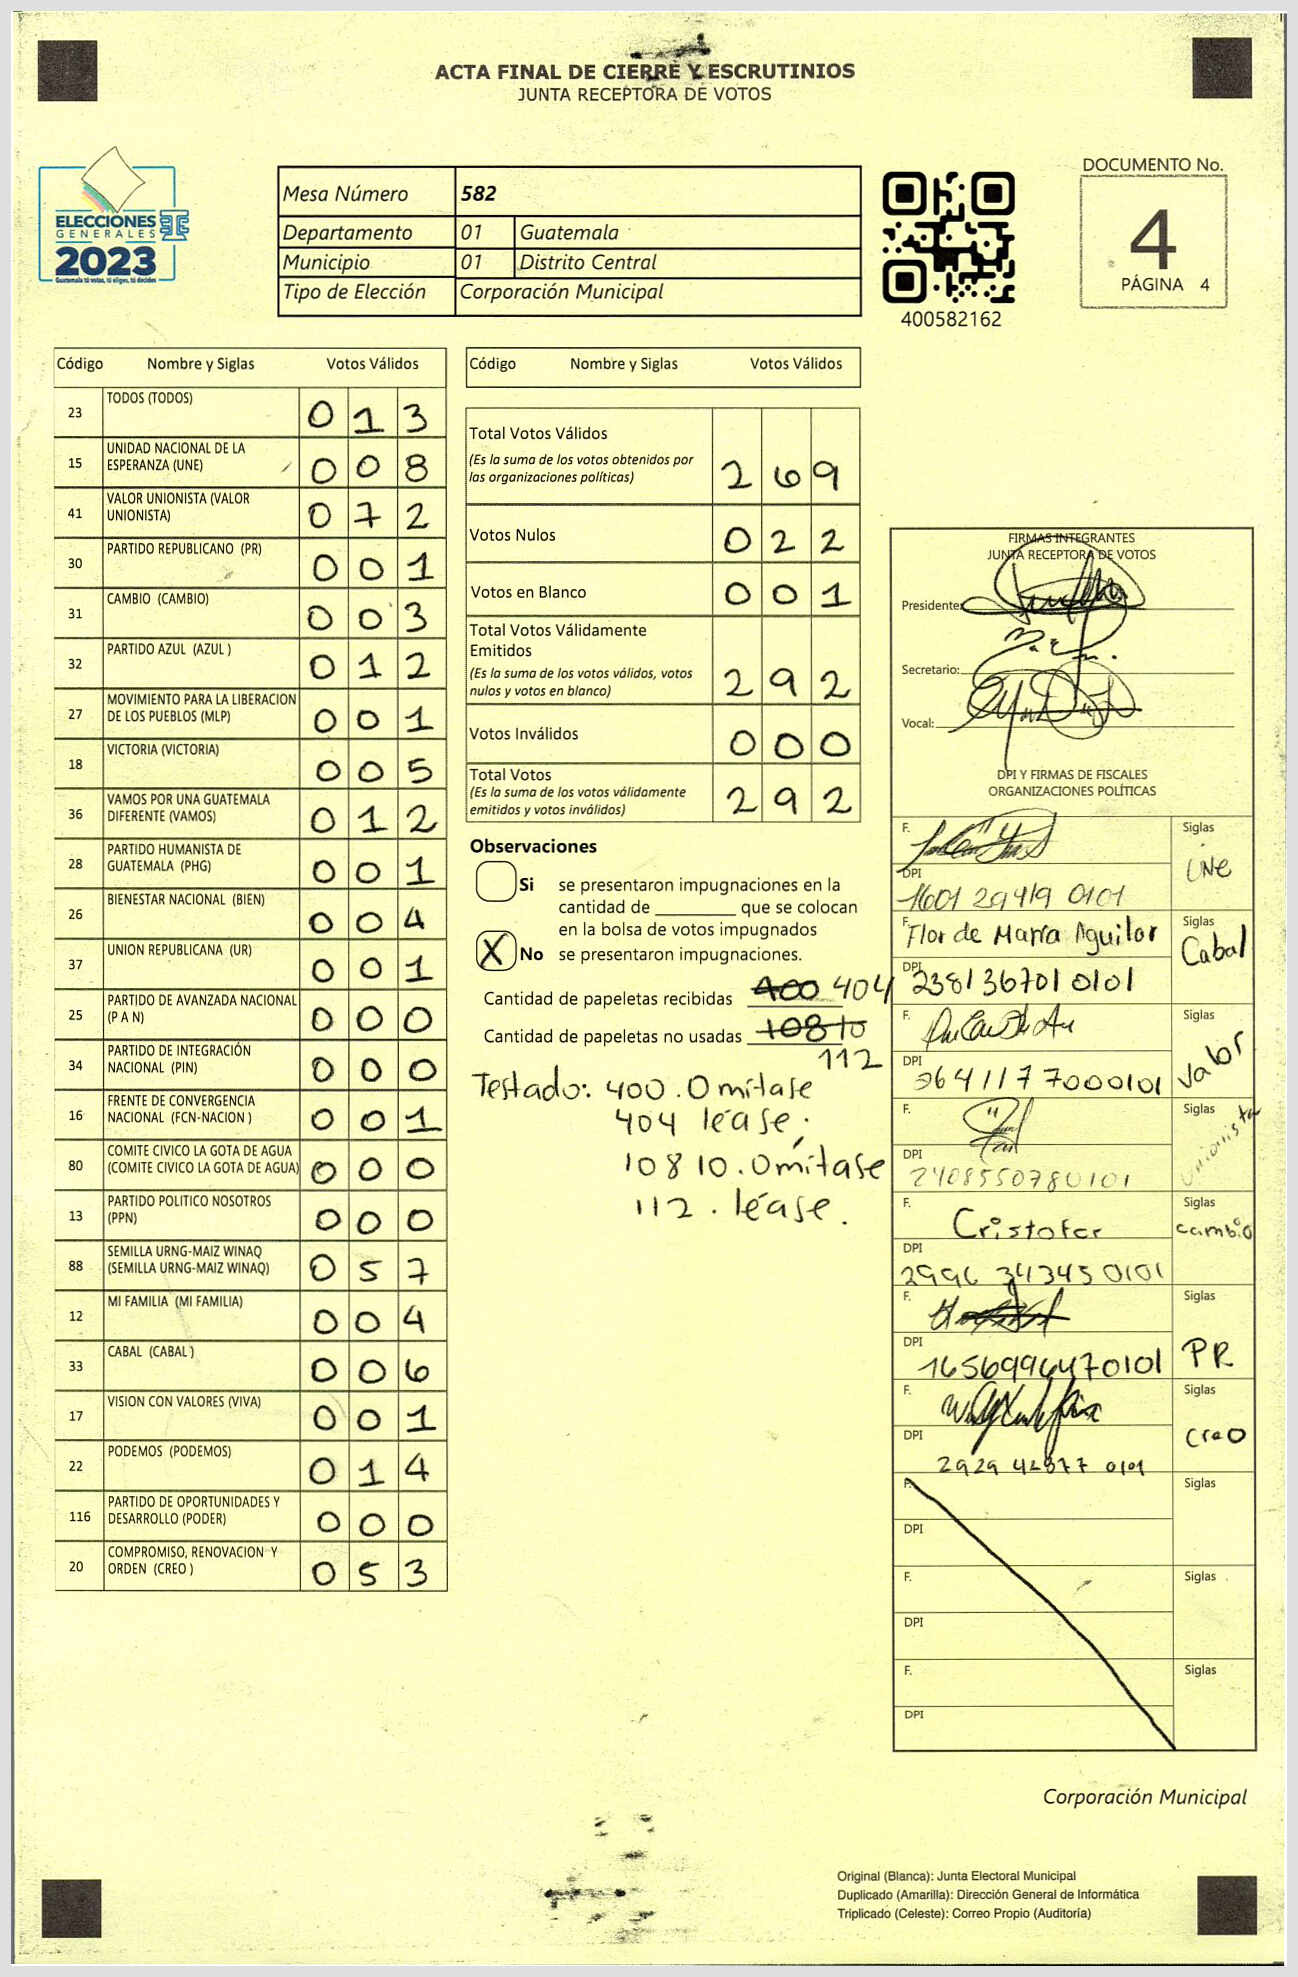 ACTA FINAL DE CIERRE Y ESCRUTINIOS
JUNTA RECEPTORA DE VOTOS
ELECCIONES
GENERALES
2023
Guatemala tú votas, tú eliges, tú decides
Mesa Número 582
Departamento 01 Guatemala
Municipio 01 Distrito Central
Tipo de Elección Corporación Municipal
400582162
DOCUMENTO No.
4
PÁGINA 4
Código Nombre y Siglas Votos Válidos
23 TODOS (TODOS) 0 1 3
15 UNIDAD NACIONAL DE LA
ESPERANZA (UNE) 0 0 8
41 VALOR UNIONISTA (VALOR
UNIONISTA) 0 7 2
30 PARTIDO REPUBLICANO (PR) 0 0 1
31 CAMBIO (CAMBIO) 0 0 3
32 PARTIDO AZUL (AZUL ) 0 1 2
27 MOVIMIENTO PARA LA LIBERACION
DE LOS PUEBLOS (MLP) 0 0 1
18 VICTORIA (VICTORIA) 0 0 5
36 VAMOS POR UNA GUATEMALA
DIFERENTE (VAMOS) 0 1 2
28 PARTIDO HUMANISTA DE
GUATEMALA (PHG) 0 0 1
26 BIENESTAR NACIONAL (BIEN) 0 0 4
37 UNION REPUBLICANA (UR) 0 0 1
25 PARTIDO DE AVANZADA NACIONAL
(P A N) 0 0 0
34 PARTIDO DE INTEGRACIÓN
NACIONAL (PIN) 0 0 0
16 FRENTE DE CONVERGENCIA
NACIONAL (FCN-NACION ) 0 0 1
80 COMITE CIVICO LA GOTA DE AGUA
(COMITE CIVICO LA GOTA DE AGUA) 0 0 0
13 PARTIDO POLITICO NOSOTROS
(PPN) 0 0 0
88 SEMILLA URNG-MAIZ WINAQ
(SEMILLA URNG-MAIZ WINAQ) 0 5 7
12 MI FAMILIA (MI FAMILIA) 0 0 4
33 CABAL (CABAL ) 0 0 6
17 VISION CON VALORES (VIVA) 0 0 1
22 PODEMOS (PODEMOS) 0 1 4
116 PARTIDO DE OPORTUNIDADES Y
DESARROLLO (PODER) 0 0 0
20 COMPROMISO, RENOVACION Y
ORDEN (CREO ) 0 5 3
Código Nombre y Siglas Votos Válidos
Total Votos Válidos
(Es la suma de los votos obtenidos por
las organizaciones políticas) 2 6 9
Votos Nulos 0 2 2
Votos en Blanco 0 0 1
Total Votos Válidamente
Emitidos
(Es la suma de los votos válidos, votos
nulos y votos en blanco) 2 9 2
Votos Inválidos 0 0 0
Total Votos
(Es la suma de los votos válidamente
emitidos y votos inválidos) 2 9 2
Observaciones
Si se presentaron impugnaciones en la
cantidad de ________ que se colocan
en la bolsa de votos impugnados
X No se presentaron impugnaciones.
Cantidad de papeletas recibidas 400 404
Cantidad de papeletas no usadas 10810
112
Testado: 400. Omítase
404 léase;
10810. Omítase
112. léase.
FIRMAS INTEGRANTES
JUNTA RECEPTORA DE VOTOS
Presidente:
Secretario:
Vocal:
DPI Y FIRMAS DE FISCALES
ORGANIZACIONES POLÍTICAS
F. Siglas
UNE
DPI
1601 29419 0101
F. Flor de María Aguilar Siglas
Cabal
DPI 2381367010101
F. Siglas
Valor
DPI 2641177000101
F. Siglas
Unionista
DPI
2408550780101
F. Cristofer Siglas
cambio
DPI
2996 34345 0101
F. Siglas
PR
DPI 1656996470101
F. Siglas
CreO
DPI
2929 42877 0101
F. Siglas
DPI
F. Siglas
DPI
F. Siglas
DPI
Corporación Municipal
Original (Blanca): Junta Electoral Municipal
Duplicado (Amarilla): Dirección General de Informática
Triplicado (Celeste): Correo Propio (Auditoría)